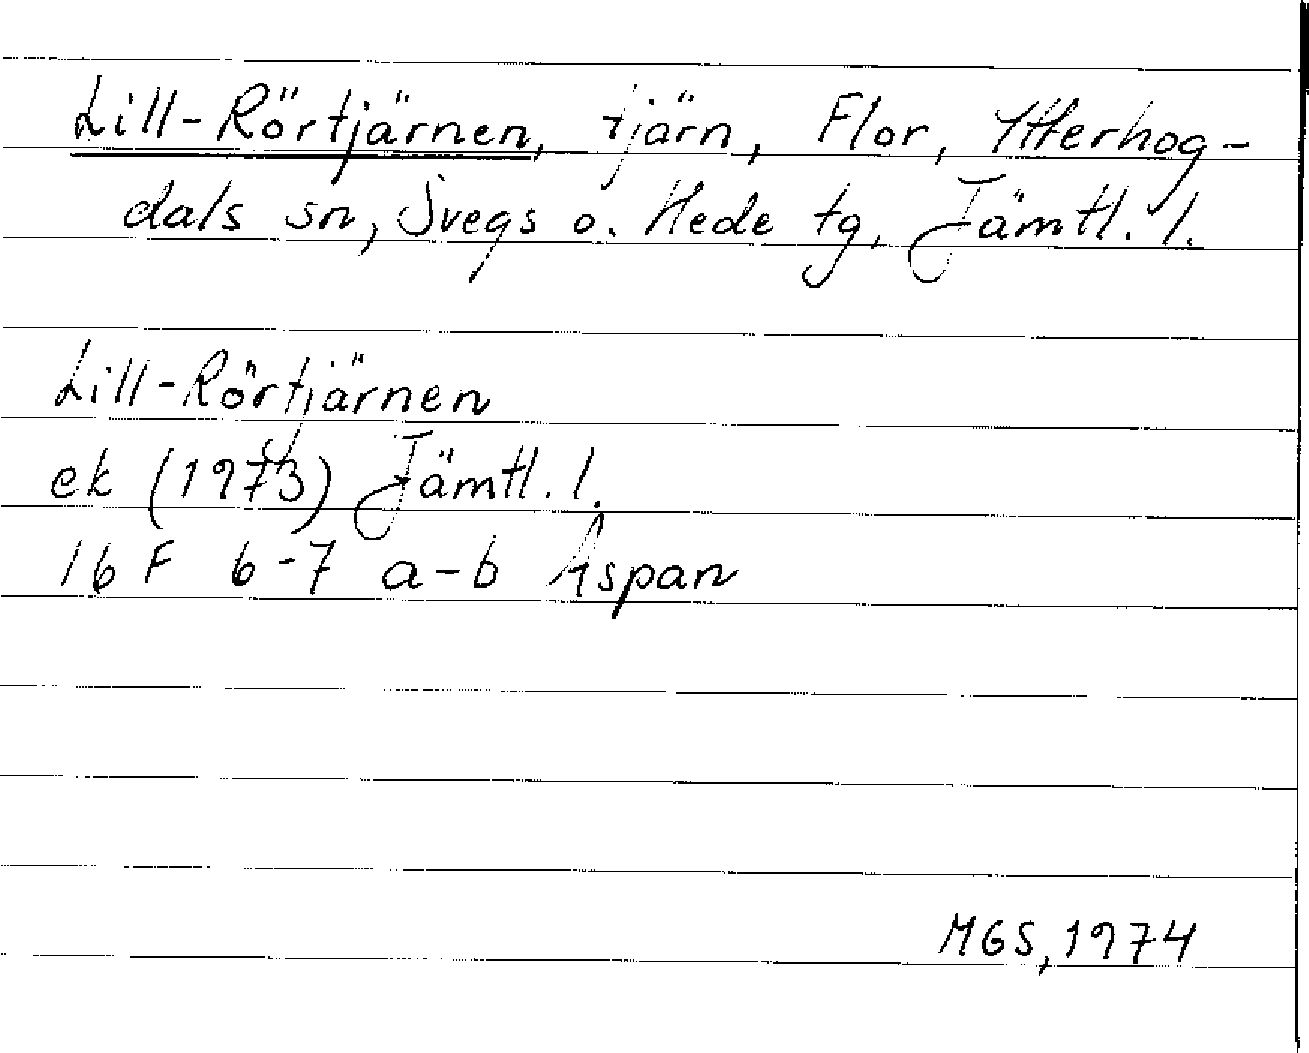 Lill-Rörtjärnen, tjärn, Flor, Ytterhog-
dals sn, Svegs o. Hede tg, Jämtl. l.
Lill-Rörtjärnen
ek (1973) Jämtl. l.
16 F 6-7 a-b Aspan
MGS, 1974